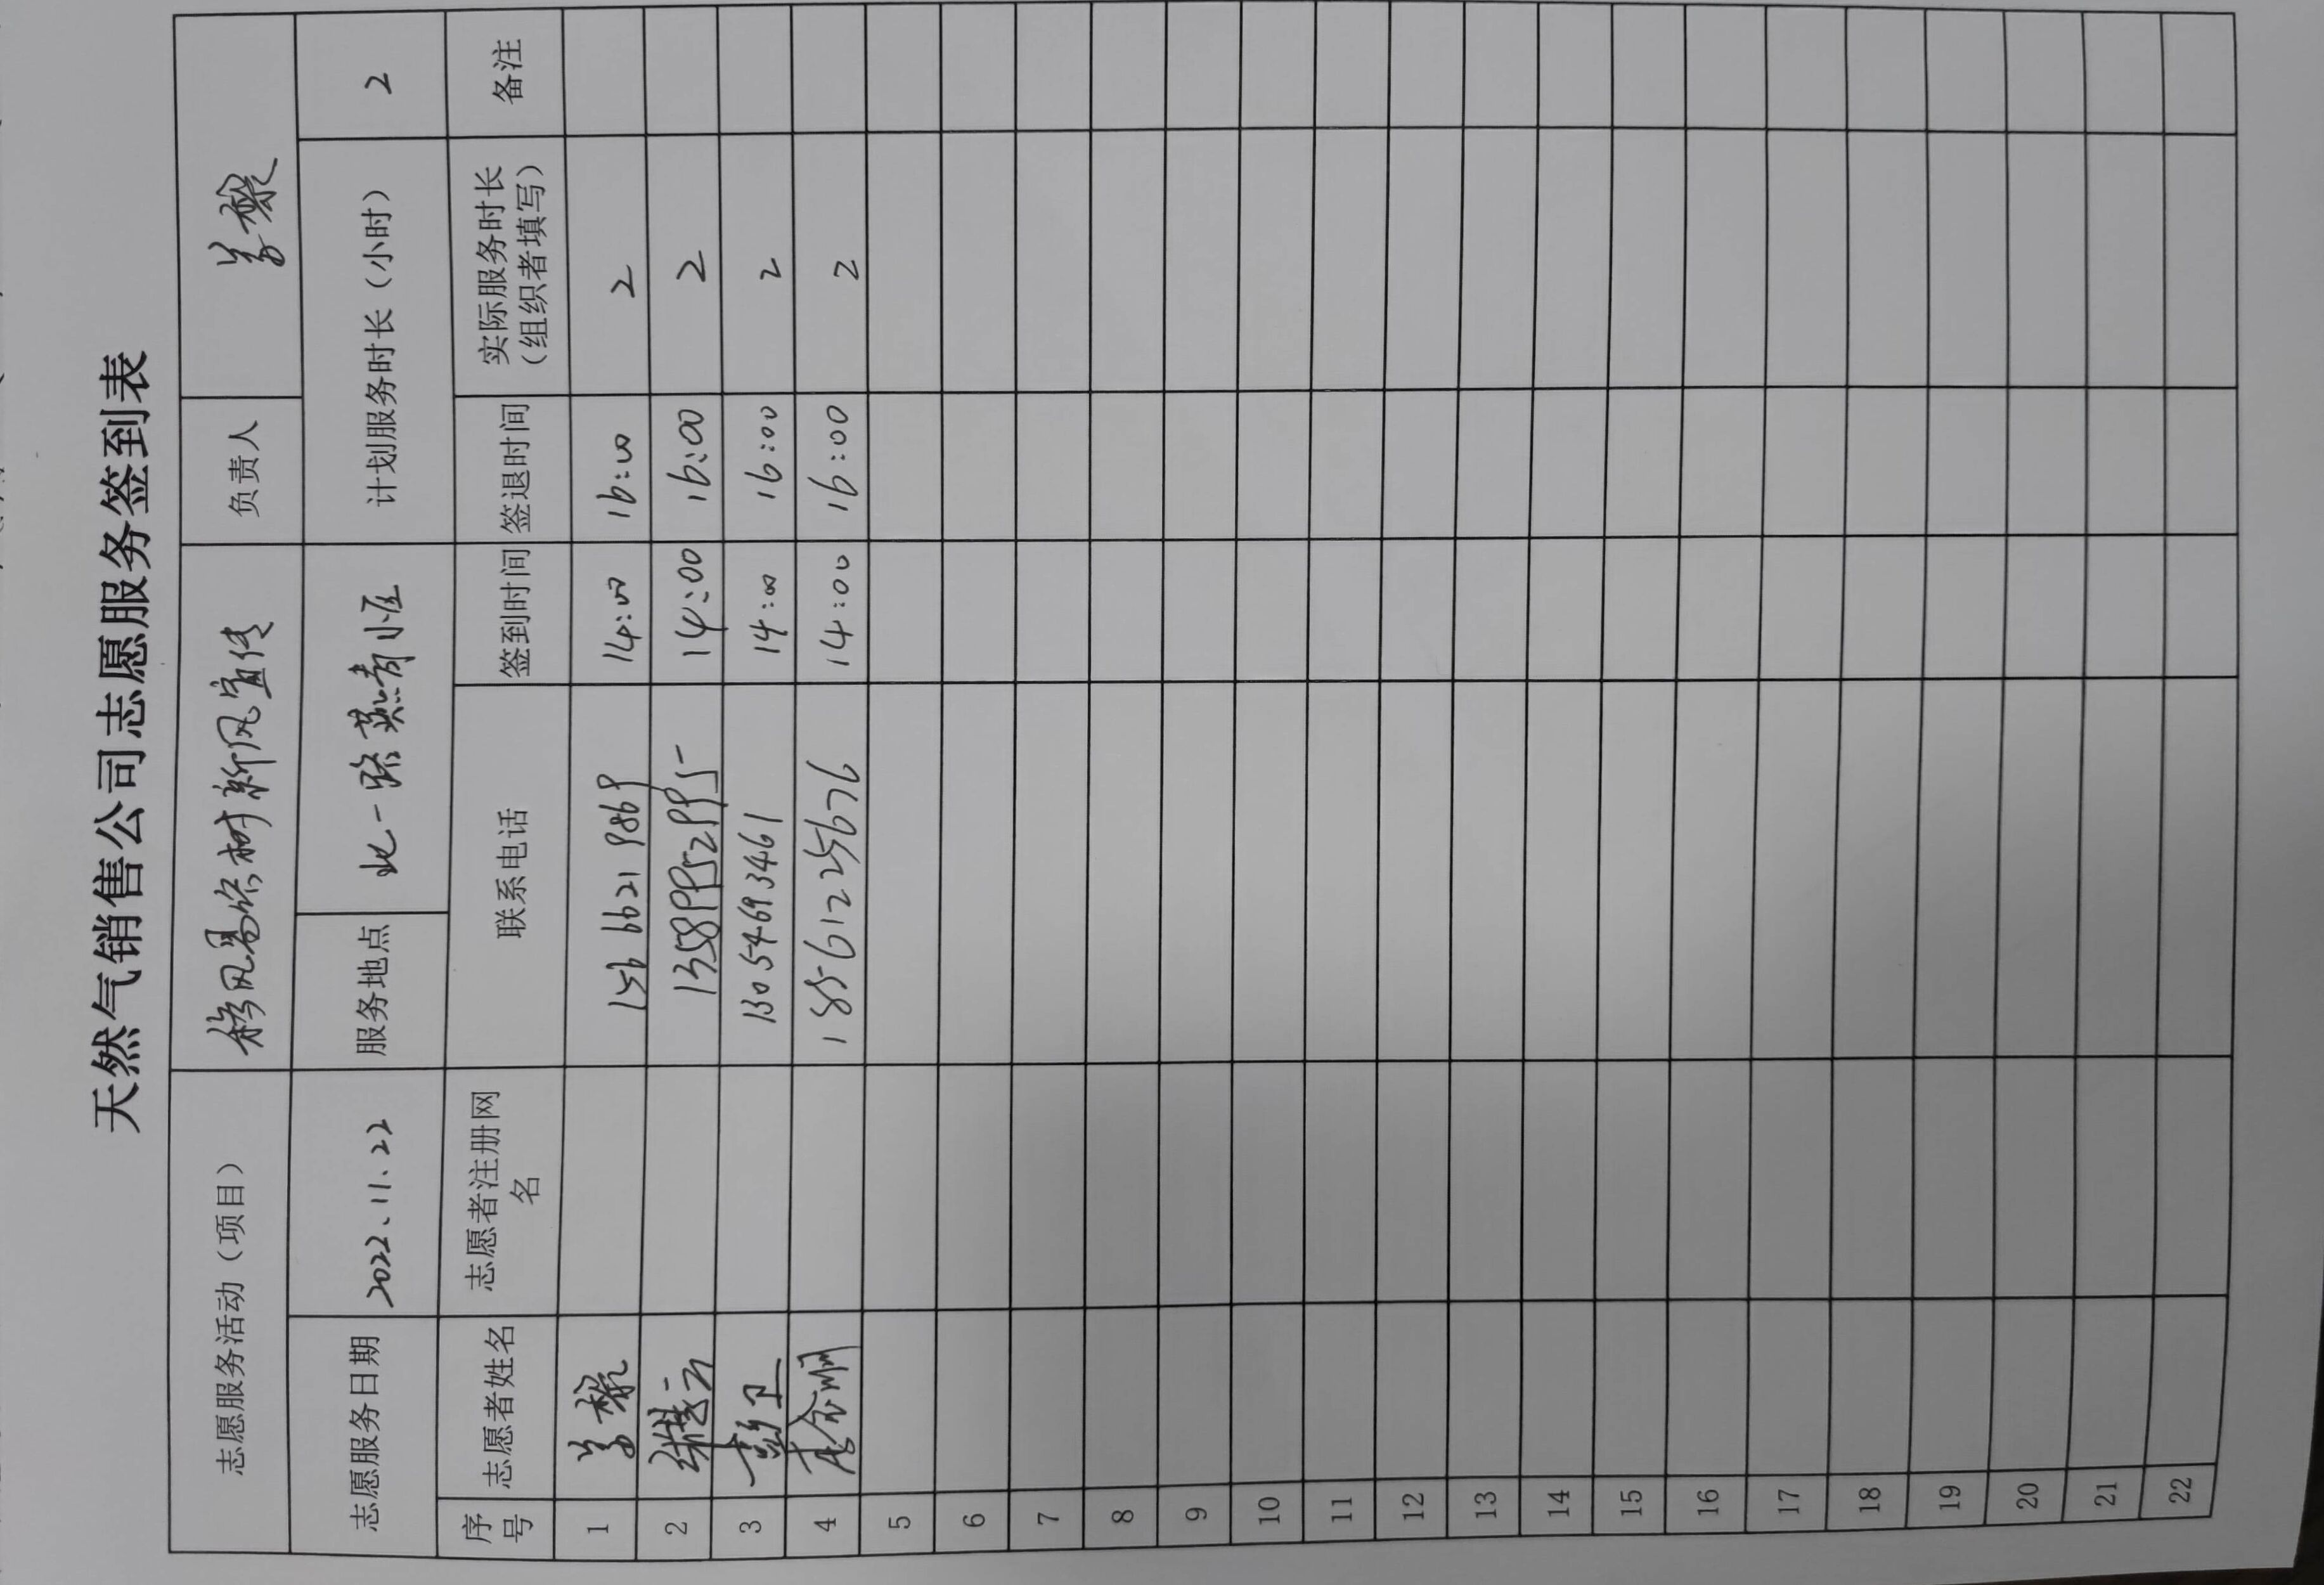 天然气销售公司志愿服务签到表
志愿服务活动（项目） 移风易俗树新风宣传 负责人
志愿服务日期 2022.11.22 服务地点 北一路燕青小区 计划服务时长（小时） 2
序号 志愿者姓名 志愿者注册网名 联系电话 签到时间 签退时间 实际服务时长（组织者填写） 备注
1 156 6621 9869 14:00 16:00 2
2 13589952995 14:00 16:00 2
3 彭卫 13054693461 14:00 16:00 2
4 18561225676 14:00 16:00 2
5
6
7
8
9
10
11
12
13
14
15
16
17
18
19
20
21
22